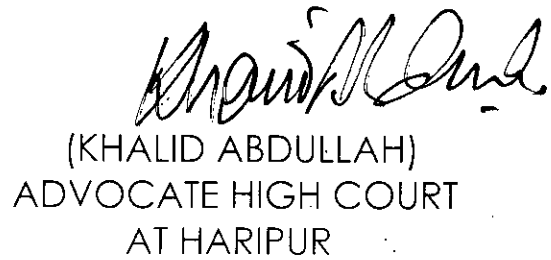 (KHALID ABDULLAH)
ADVOCATE HIGH COURT
AT HARIPUR